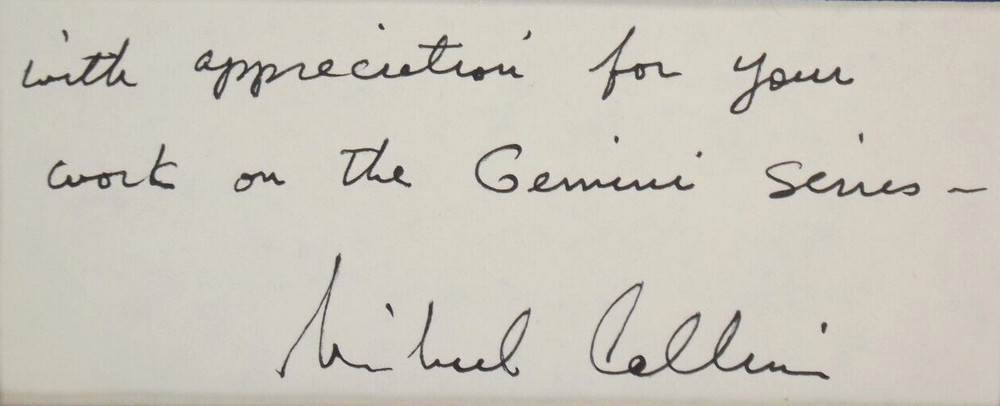 with appreciation for your
work on the Gemini Series –
Michael Collins